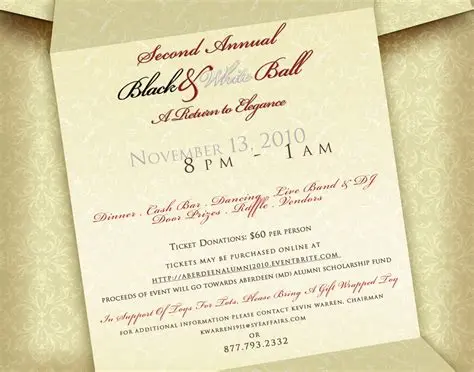 Second Annual
Black & White Ball
A Return to Elegance
November 13, 2010
8 pm - 1 am
Dinner . Cash Bar . Dancing . Live Band & DJ
Door Prizes . Raffle . Vendors
Ticket Donations: $60 per person
tickets may be purchased online at
http://aberdeenalumni2010.eventbrite.com
proceeds of event will go towards aberdeen (md) alumni scholarship fund
In Support Of Toys For Tots, Please Bring A Gift Wrapped Toy
for additional information please contact kevin warren, chairman
kwarren1911@syeaffairs.com
or
877.793.2332